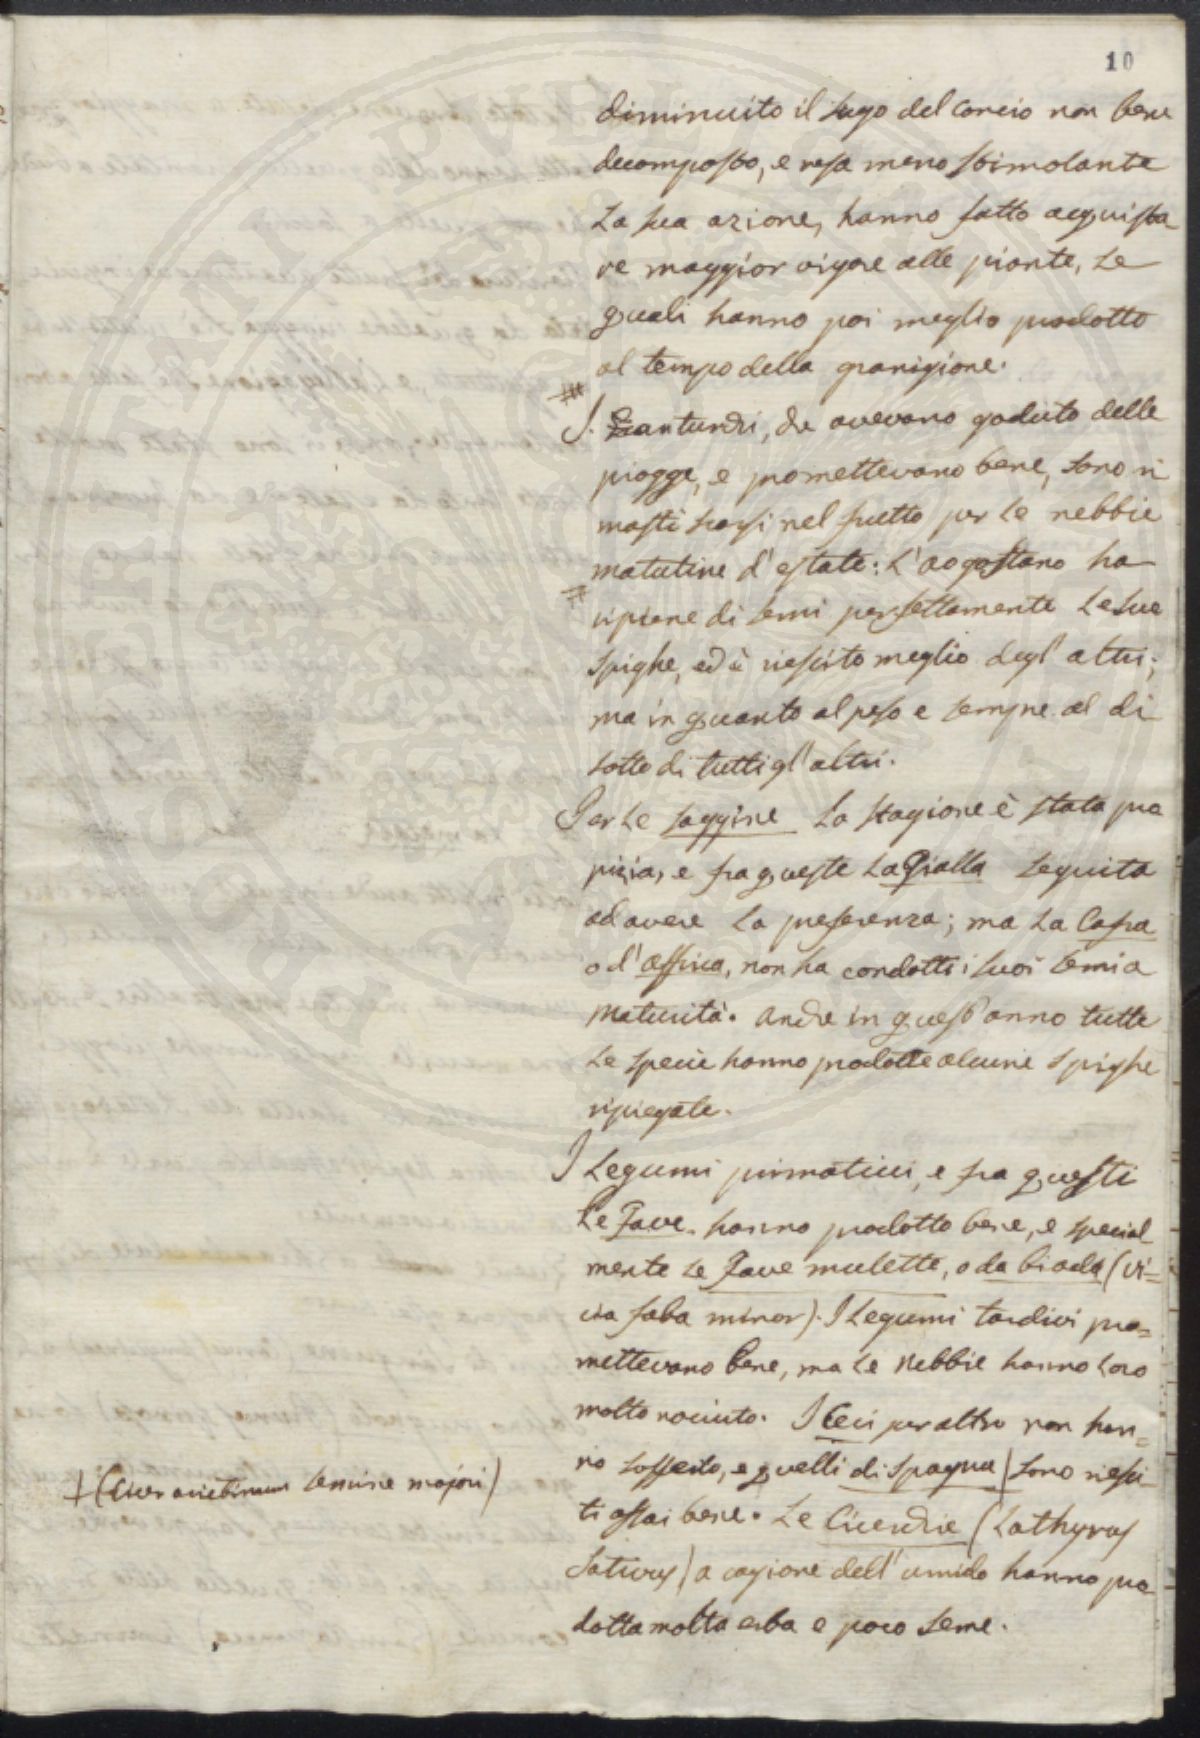 10
diminuito il sugo del concio non bene
decomposto, e resa meno stimolante
La sua azione, hanno fatto acquista-
re maggior vigore alle piante, Le
quali hanno poi meglio prodotto
al tempo della granigione.
I. Granturchi, che avevano goduto delle
piogge, e promettevano bene, sono ri
masti scarsi nel frutto per le nebbie
matutine d'estate: L'aogostano ha
ripiene di semi perfettamente Le sue
spighe, ed è riescito meglio degl'altri;
ma in quanto al peso e sempre al di
sotto di tutti gl'altri.
Per Le saggine La stagione è stata pro
pizia, e fra queste La Gialla seguita
ad avere La preferenza; ma La Cafra
o d'Affrica, non ha condotti i suoi semi a
maturità. Anche in quest'anno tutte
Le specie hanno prodotte alcune spighe
ripiegate.
I Legumi primaticci, e fra questi
Le Fave hanno prodotto bene, e special-
mente Le Fave mulette, o da biada (vi=
cia faba minor). I Legumi tardivi pro=
mettevano bene, ma Le Nebbie hanno Loro
molto nociuto. I Ceci per altro non han=
no sofferto, e quelli di Spagna) sono riesci-
ti assai bene. Le Cicerchie (Lathyrus
Sativus) a cagione dell'umido hanno pro
dotta molta erba e poco seme.
+ (Cicer arietinum semine majori)